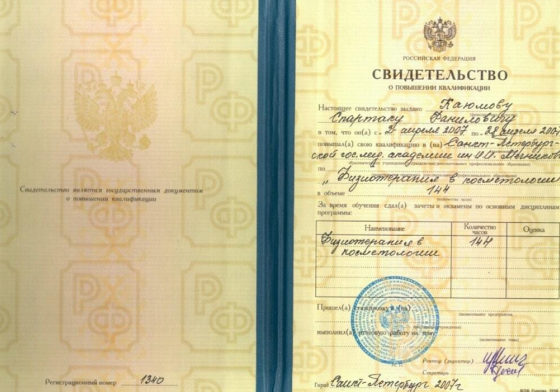 Свидетельство является государственным документом
о повышении квалификации
Регистрационный номер 1340
РОССИЙСКАЯ ФЕДЕРАЦИЯ
СВИДЕТЕЛЬСТВО
О ПОВЫШЕНИИ КВАЛИФИКАЦИИ
Настоящее свидетельство выдано Каюмову
Спартаку Фаниловичу
в том, что он(а) с 2 апреля 2007 по 28 апреля 200
повысил(а) свою квалификацию в (на) Санкт-Петербург-
ской гос. мед. академии им И.И. Мечникова
по
„Физиотерапия в косметологии
в объеме 144
За время обучения сдал(а) зачеты и экзамены по основным дисциплинам
программы:
Наименование Количество часов Оценка
Физиотерапия в 144
косметологии
Прошел(а) стажировку в (на)
выполнил(а) итоговую работу на тему
Ректор (директор)
Секретарь
Город Санкт-Петербург 2007г